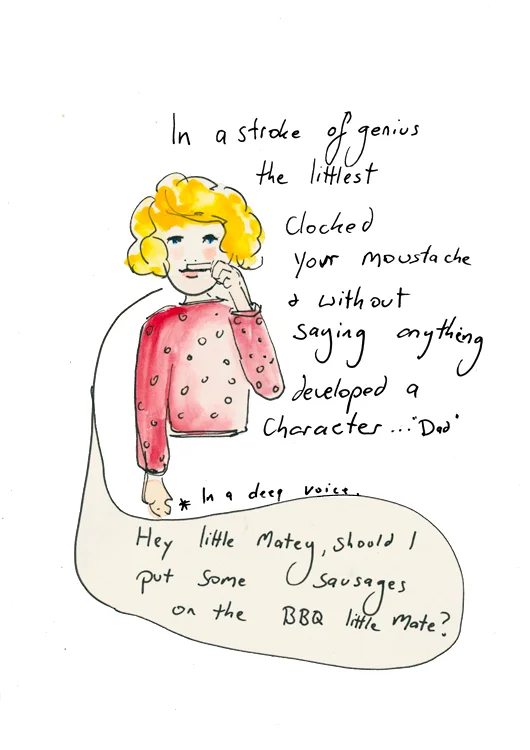 In a stroke of genius
the littlest
Clocked
your moustache
& without
saying anything
developed a
Character... "Dad"
* In a deep voice.
Hey little Matey, should I
put some sausages
on the BBQ little Mate?